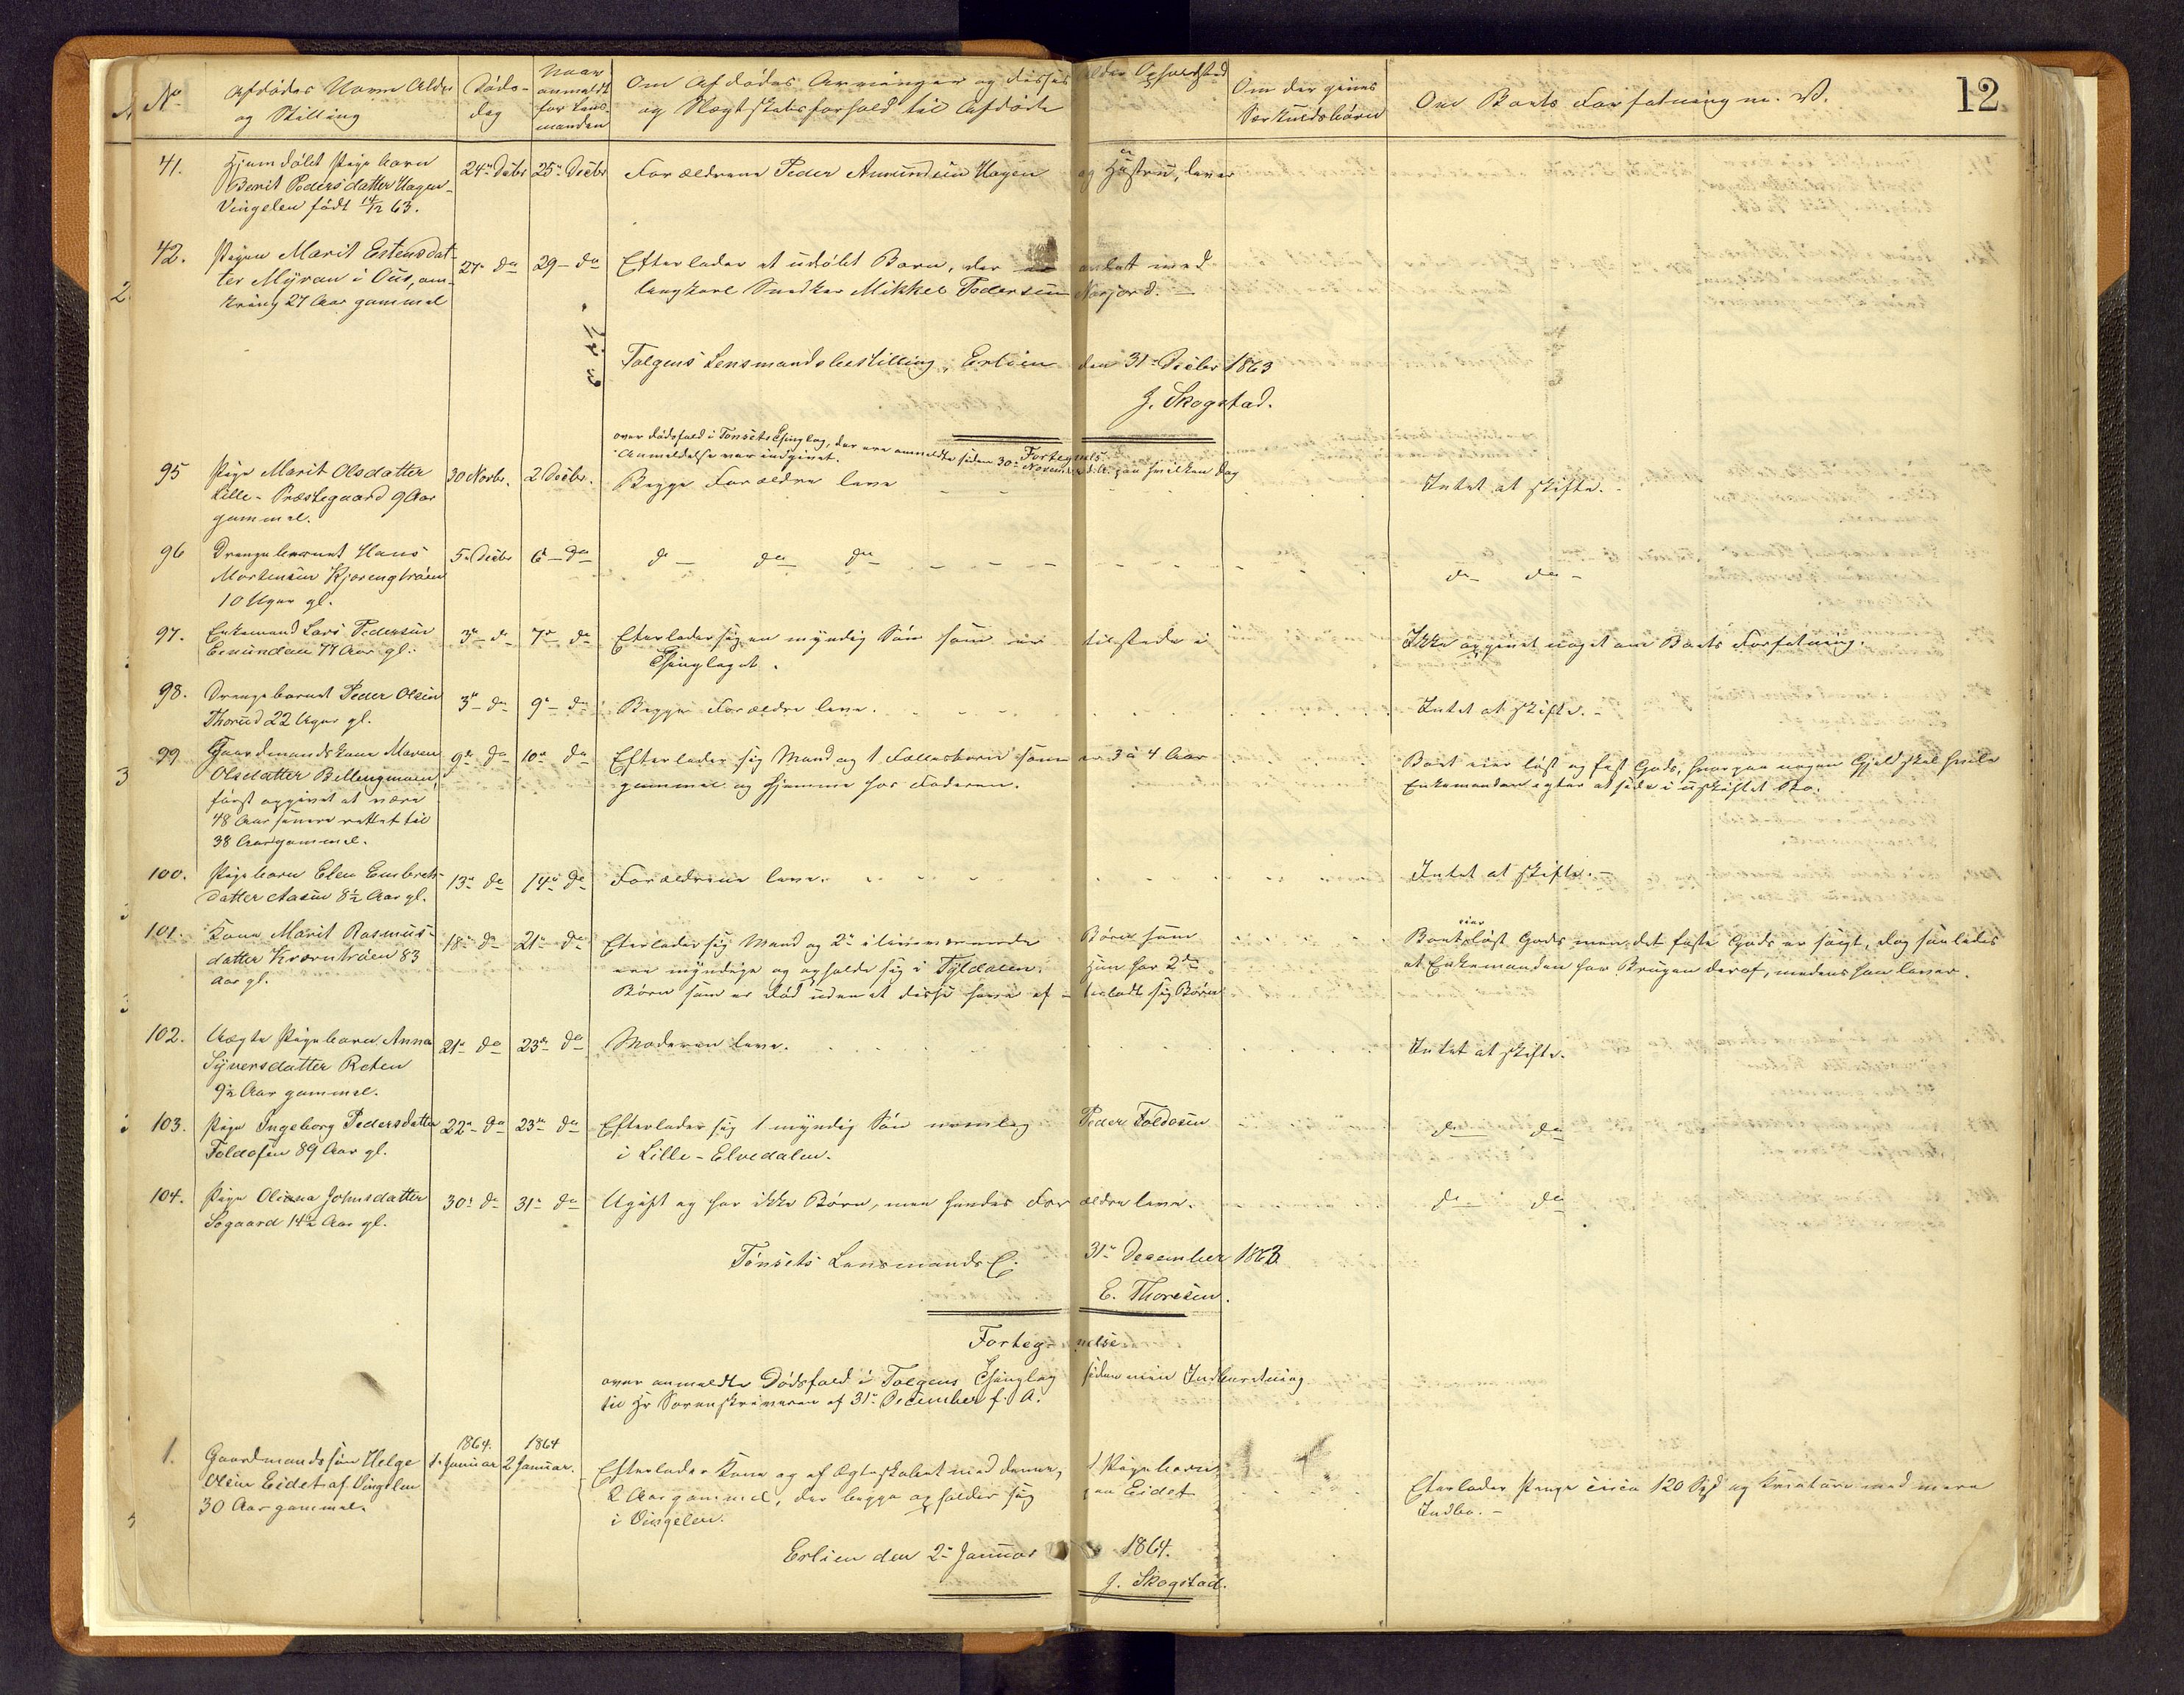 12
No Afdödes Navn Alder og Stilling
Döds-dag
Naar anmeldt for Lens-manden
Om Afdödes Arvinger og disses Alder Opholdsted
og Slægtskabsforhold til Afdöde
Om der gives Særkuldsbörn
Om Boets Forfatning m. V.
41. Hjemdöbt Pigebarn
Berit Pedersdatter Hagen
Vingelen födt 14/12 63.
24de Decbr 25de Decbr Forældrene Peder Amundsen Hagen og Hustru, lever
42. Pigen Marit Estensdat-
ter Myran i Ous, om-
kring 27 Aar gammel
27. do 29 do Efterlader et udöbt Barn, der er avlet med
Ungkarl Snedker Mikkel Pedersen Narjord.
Tolgens Lensmandsbestilling, Erlien den 31 Decbr 1863
J. Skogstad.
Fortegnelse
over dödsfald i Tönsets Thinglag, der ere anmeldte siden 30 November d. A. paa hvilken Dag
Anmeldelse var indgivet.
95 Pige Marit Olsdatter
Lille-Præstegaard 9 Aar
gammel.
30 Novbr. 2 Decbr. Begge Forældre leve Intet at skifte.
96 Drengebarnet Hans
Mortensen Kjorengtröen
10 Uger gl.
5 Decbr 6 do do do do do do
97. Enkemand Lars Pedersen
Eenundau 77 Aar gl.
3 do 7 do Efterlader sig en myndig Sön som er tilstede i
Thinglaget.
Ikke opgivet noget om Boets Forfatning.
98. Drengebarnet Peder Olsen
Thorud 22 Uger gl.
3 do 9 do Begge Forældre leve. Intet at skifte.
99 Gaardmandskone Maren
Olsdatter Bellingmoen,
först opgivet at være
48 Aar senere rettet til
38 Aar gammel.
9 do 10 do Efterlader sig Mand og 1 Fællesbarn som er 3 à 4 Aar
gammel og hjemme hos Faderen.
Boet eier löst og fast Gods, hvorpaa nogen Gjeld skal hvile
Enkemanden agter at side i uskiftet Bo.
100. Pigebarn Elen Embrets-
datter Aasen 8½ Aar gl.
13 do 14 do Forældrene leve. Intet at skifte.
101. Kone Marit Rasmus-
datter Kværntröen 83
Aar gl.
18 do 21 do Efterlader sig Mand og 2 ilivev­ærende Börn som
ere myndige og opholde sig i Tyldalen. Hun har 2de
Börn som er död uden at disse have efterladt sig Börn
eier
Boet löst Gods men det faste Gods er solgt, dog saaledes
at Enkemanden har Brugen deraf, medens han lever.
102. Uægte Pigebarn Anna
Syversdatter Roten
9½ Aar gammel.
21 do 23 do Moderen leve. Intet at skifte.
103. Pige Ingeborg Pedersdatter
Foldosen 89 Aar gl.
22 do 23 do Efterlader sig 1 myndig Sön nemlig Peder Foldosen
i Lille-Elvedalen.
do do
104. Pige Oliana Johnsdatter
Sögaard 14½ Aar gl.
30 do 31 do Ugift og har ikke Börn, men hendes Forældre leve.
do do
Tönsets Lensmands C. 31 December 1863
E. Thoresen.
Fortegnelse
over anmeldte Dödsfald i Tolgens Thinglag siden min Indberetning
til Hr Sorenskriveren af 31 December f. A.
1. Gaardmandssön Helge
Olsen Eidet af Vingelen
30 Aar gammel.
1864. 1 Januar 1864 2 Januar.
Efterlader Kone og af Ægteskabet med denne, 1 Pigebarn,
2 Aar gammel, der begge opholder sig paa Eidet
i Vingelen.
Efterlader Penge circa 120 Spd og Kreature med mere
Indbo.
Erlien den 2 Januar 1864.
J. Skogstad.